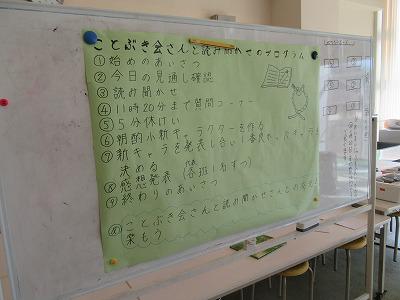 ことぶき会さんと読み聞かせのプログラム
①始めのあいさつ
②今日の見通し確認
③読み聞かせ
④11時20分まで質問コーナー
⑤5分休けい
⑥朝酌小新キャラクターを作る
⑦新キャラを発表し合い1番良い
決める
⑧感想発表(各班1名ずつ)
代表
⑨終わりのあいさつ
めことぶき会さんと読み聞かせ
楽もう